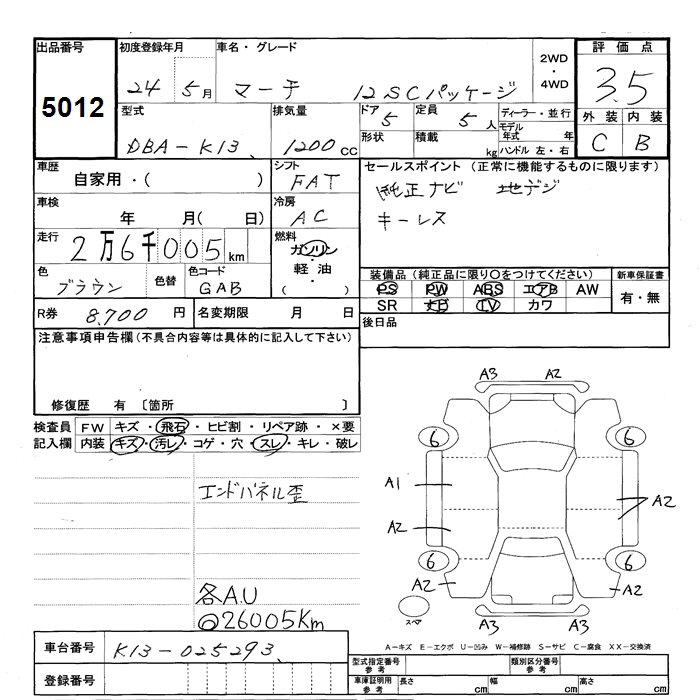 出品番号 初度登録年月 車名・グレード 2WD・4WD 評価点
5012 24 5月 マーチ 12SCパッケージ 3.5
型式 排気量 ドア 定員 ディーラー・並行 外装 内装
DBA-K13 1200cc 5 5人 モデル年式 年 C B
形状 積載 kg ハンドル 左・右
車歴 シフト セールスポイント (正常に機能するものに限ります)
自家用・( ) FAT 純正ナビ 地デジ
車検 冷房 キーレス
年 月(日) AC
走行 2万6千005km 燃料
ガソリン・軽油・( )
色 色替 色コード 装備品 (純正品に限り〇をつけてください) 新車保証書
ブラウン GAB PS PW ABS エアB AW 有・無
SR ナビ TV カワ
R券 8,700円 名変期限 月 日 後日品
注意事項申告欄 (不具合内容等は具体的に記入して下さい)
修復歴 有 〔箇所 〕
検査員 FW キズ・飛石・ヒビ割・リペア跡・×要
記入欄 内装 キズ・汚レ・コゲ・穴・スレ・キレ・破レ
エンドパネル歪
各A.U
26005Km
A3 A2
6 6
A1
A2 A2
6 6
A2 A2
スペア A3 A3
A-キズ E-エクボ U-凹み W-補修跡 S-サビ C-腐食 XX-交換済
車台番号 K13-025293
登録番号
型式指定番号 参考 類別区分番号 参考
車庫証明用 参考 長さ cm 幅 cm 高さ cm